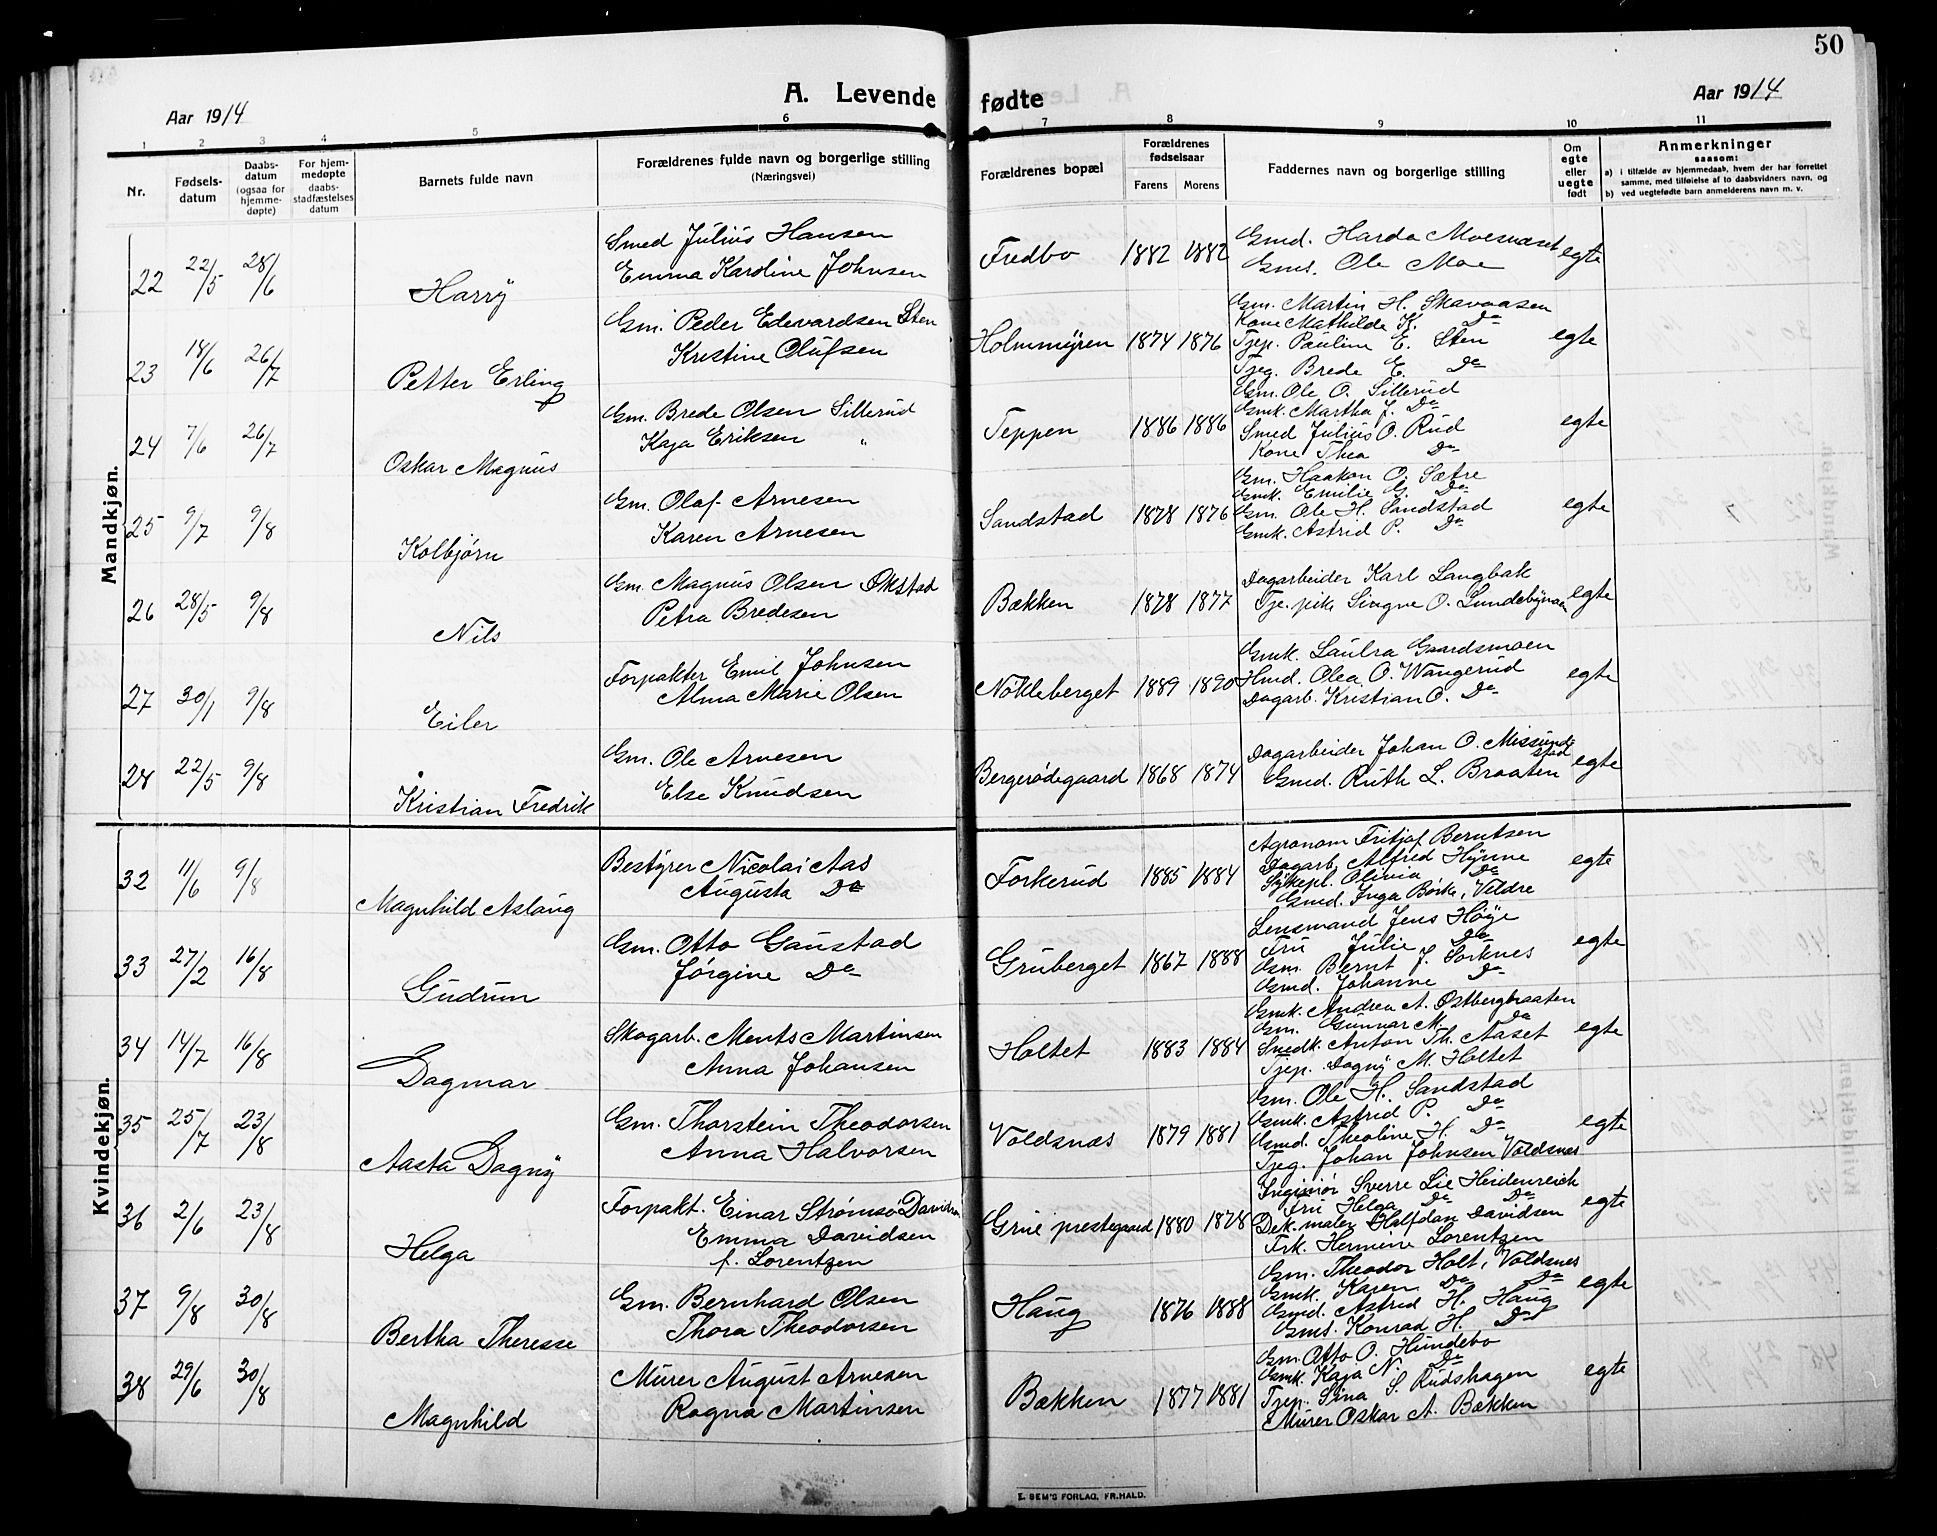 50
A. Levende fødte
Aar 1914
Aar 1914
1 2 3 4 5 6 7 8 9 10 11
Nr.
Fødsels-datum
Daabs-datum (ogsaa for hjemme-døpte)
For hjem-medøpte daabs-stadfæstelses datum
Barnets fulde navn
Forældrenes fulde navn og borgerlige stilling (Næringsvei)
Forældrenes bopæl
Forældrenes fødselsaar
Farens Morens
Faddernes navn og borgerlige stilling
Om egte eller uegte født
Anmerkninger
saasom:
a) i tilfælde av hjemmedaab, hvem der har forrettet samme, med tilføielse af to daabsvidners navn, og
b) ved uegtefødte barn anmelderens navn m. v.
Mandkjøn.
22 22/5 28/6 Harry
Smed Julius Hansen
Emma Karoline Johnsen
Fredbo 1882 1882
Gmd. Harda Moesnæset
Gms. Ole Moe
egte
23 14/6 26/7 Petter Erling
Gm. Peder Edevardsen Sten
Kristine Olufsen
Holmmyren 1874 1876
Gm. Martin H. Skavaasen
Kone Mathilde K. Do
Tjep. Pauline E. Sten
Tjeg. Brede E. Do
egte
24 7/6 26/7 Oskar Magnus
Gm. Brede Olsen Sillerud
Kaja Eriksen "
Teppen 1886 1886
Gm. Ole O. Sillerud
Gmk. Martha J. Do
Smed Julius O. Rud
Kone Thea Do
egte
25 9/7 9/8 Kolbjørn
Gm. Olaf Arnesen
Karen Arnesen
Sandstad 1878 1876
Gm. Haakon O. Sætre
Gmk. Emilie G. Do
Gm. Ole H. Sandstad
Gmk. Astrid P. Do
egte
26 28/5 9/8 Nils
Gm. Magnus Olsen Økstad
Petra Bredesen
Bækken 1878 1877
Dagarbeider Karl Langbak
Tje.pike Signe O. Lundebynæs
egte
27 30/1 9/8 Eiler
Forpakter Emil Johnsen
Alma Marie Olsen
Nökleberget 1889 1890
Gmk. Laura Gaardsmoen
Hmd. Olea O. Wangerud
Dagarb. Kristian O. Do
egte
28 22/5 9/8 Kristian Fredrik
Gm. Ole Arnesen
Else Knudsen
Bergerødegaard 1868 1874
Dagarbeider Johan O. Missundstad
Gmd. Ruth L. Braaten
egte
Kvindekjøn.
32 11/6 9/8 Magnhild Aslaug
Bestyrer Nicolai Aas
Augusta Do
Forkerud 1885 1884
Agronom Fritjof Berntsen
Dagarb. Alfred Hynne
Sykepl. Olivia Do
Gmd. Inga Børke, Veldre
egte
33 27/2 16/8 Gudrun
Gm. Otto Gaustad
Jørgine Do
Gruberget 1867 1888
Lensmand Jens Høye
Fru Julie Do
Gm. Bernt J. Sorknes
Gmd. Johanne Do
egte
34 14/7 16/8 Dagmar
Skogarb. Ments Martinsen
Anna Johansen
Holtet 1883 1884
Gmk. Andrea A. Østbergbraaten
Gm. Gunnar M. Do
Snedk. Anton Th. Aaset
Tjep. Dagny M. Holtet
egte
35 25/7 23/8 Aasta Dagny
Gm. Thorstein Theodorsen
Anna Halvorsen
Voldsnæs 1879 1881
Gm. Ole H. Sandstad
Gmk. Astrid P. Do
Gmd. Theoline H. Do
Tjeg. Johan Johnsen Voldsnæs
egte
36 2/6 23/8 Helga
Forpakt. Einar Strømsø Davidsen
Emma Davidsen
f. Lorentzen
Grue prestegaard 1880 1878
Ingeniør Sverre Lie Heidenreich
Fru Helga Do Do
Dek.maler Halfdan Davidsen
Frk. Hermine Lorentzen
egte
37 9/8 30/8 Bertha Therese
Gm. Bernhard Olsen
Thora Theodorsen
Haug 1876 1888
Gm. Theodor Holt, Voldsnes
Gmk. Karen Do Do
Gmd. Astrid H. Haug
Gms. Konrad H. Do
egte
38 29/6 30/8 Magnhild
Murer August Arnesen
Ragna Martinsen
Bækken 1877 1881
Gm. Otto O. Hundebo
Gmk. Kaja N. Do
Tjep. Sina S. Rudshagen
Murer Oskar A. Bækken
egte
E. SEM'S FORLAG, FR.HALD.